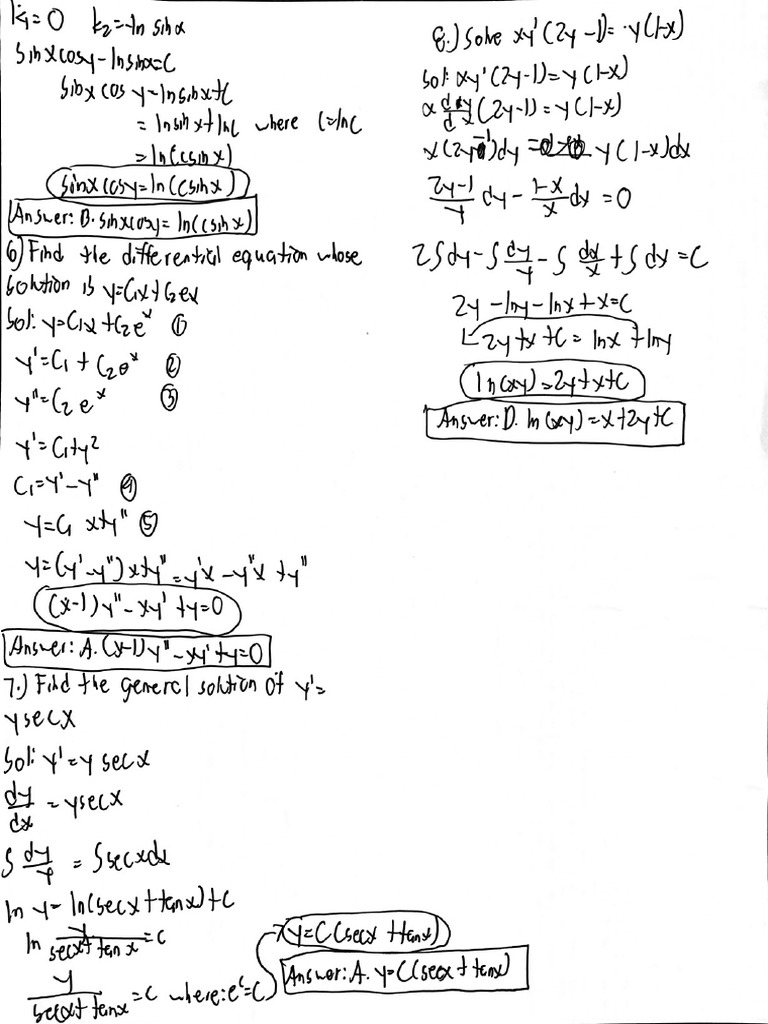 k₁=0 k₂=-ln sinx
sinxcosy-lnsinx=C
sinx cos y-lnsinx+C
= lnsinx+lnC where C=lnC
= ln(csinx)
sinxcosy=ln(csinx)
Answer: B. sinxcosy=ln(csinx)
6) Find the differential equation whose
solution is y=C₁x+C₂ex
Sol: y=C₁x+C₂eˣ ①
y'=C₁+C₂eˣ ②
y"=C₂eˣ ③
y'=C₁+y²
C₁=y'-y" ④
y=C₁ x+y" ⑤
y=(y'-y")x+y"=y'x-y"x+y"
(x-1)y"-xy'+y=0
Answer: A. (x-1)y"-xy'+y=0
7.) Find the general solution of y'=
ysecx
Sol: y'=y secx
dy/dx = ysecx
∫ dy/y = ∫secxdx
ln y= ln(secx+tanx)+C
ln y/(secx+tan x)=C
y/(secx+tanx)=C where: eᶜ=C
y=C(secx+tanx)
Answer: A. y=C(secx+tanx)
8.) Solve xy'(2y-1)=y(1-x)
Sol: xy'(2y-1)=y(1-x)
x dy/dx (2y-1)=y(1-x)
x(2y-1)dy = y(1-x)dx
(2y-1)/y dy - (1-x)/x dx =0
2∫dy-∫dy/y-∫dx/x+∫dx=C
2y-lny-lnx+x=C
2y+x+C=lnx+lny
ln(xy)=2y+x+C
Answer: D. ln(xy)=x+2y+C